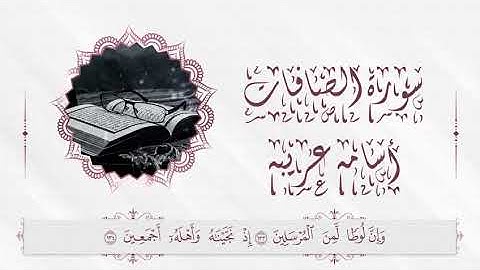 سورة الصافات
أسامه غريبه
وَإِنَّ لُوطًا لَّمِنَ الْمُرْسَلِينَ ﴿١٣٣﴾ إِذْ نَجَّيْنَاهُ وَأَهْلَهُ أَجْمَعِينَ ﴿١٣٤﴾